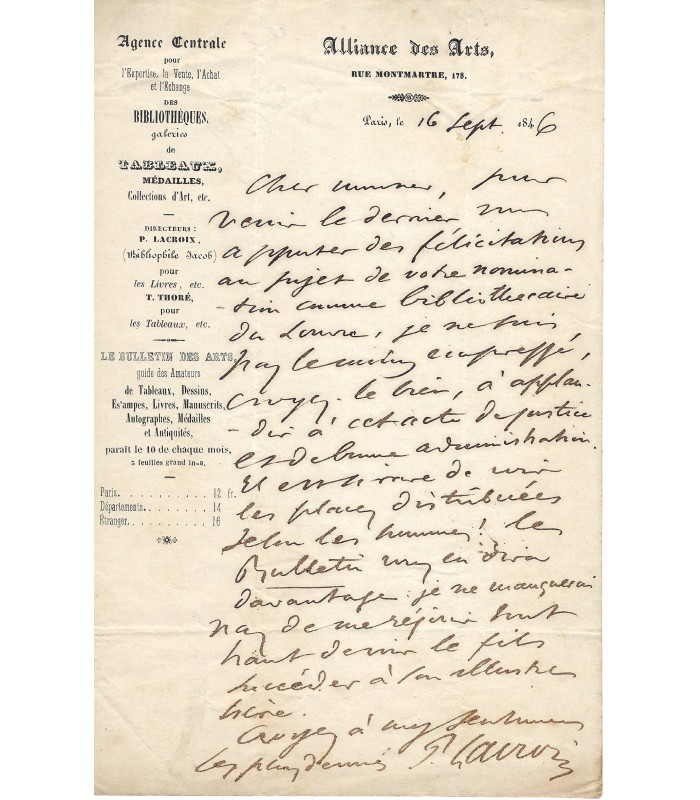 Agence Centrale
pour
l'Expertise, la Vente, l'Achat
et l'Echange
DES
BIBLIOTHÈQUES,
galeries
de
TABLEAUX,
MÉDAILLES,
Collections d'Art, etc.
DIRECTEURS :
P. LACROIX,
(Bibliophile Jacob)
pour
les Livres, etc.
T. THORÉ,
pour
les Tableaux, etc.
LE BULLETIN DES ARTS,
guide des Amateurs
de Tableaux, Dessins,
Estampes, Livres, Manuscrits,
Autographes, Médailles
et Antiquités,
paraît le 10 de chaque mois,
2 feuilles grand in-8.
Paris. . . . . . . . . . . 12 fr.
Départements. . . . . . . 14
Étranger. . . . . . . . . . 16
Alliance des Arts,
RUE MONTMARTRE, 178.
Paris, le 16 Sept. 1846
Cher monsieur, pour
venir le dernier vous
apporter des félicitations
au sujet de votre nomina-
-tion comme bibliothécaire
du Louvre, je ne suis
pas le moins empressé,
croyez-le bien, à applau-
-dir à cet acte de justice
et de bonne administration.
Et de voir
les places distribuées
selon les hommes! le
Bulletin vous en dira
davantage: je ne manquerai
pas de me réjouir tout
haut de voir le fils
succéder à son illustre
père.
Croyez à mes sentimens
les plus dévoués P. Lacroix